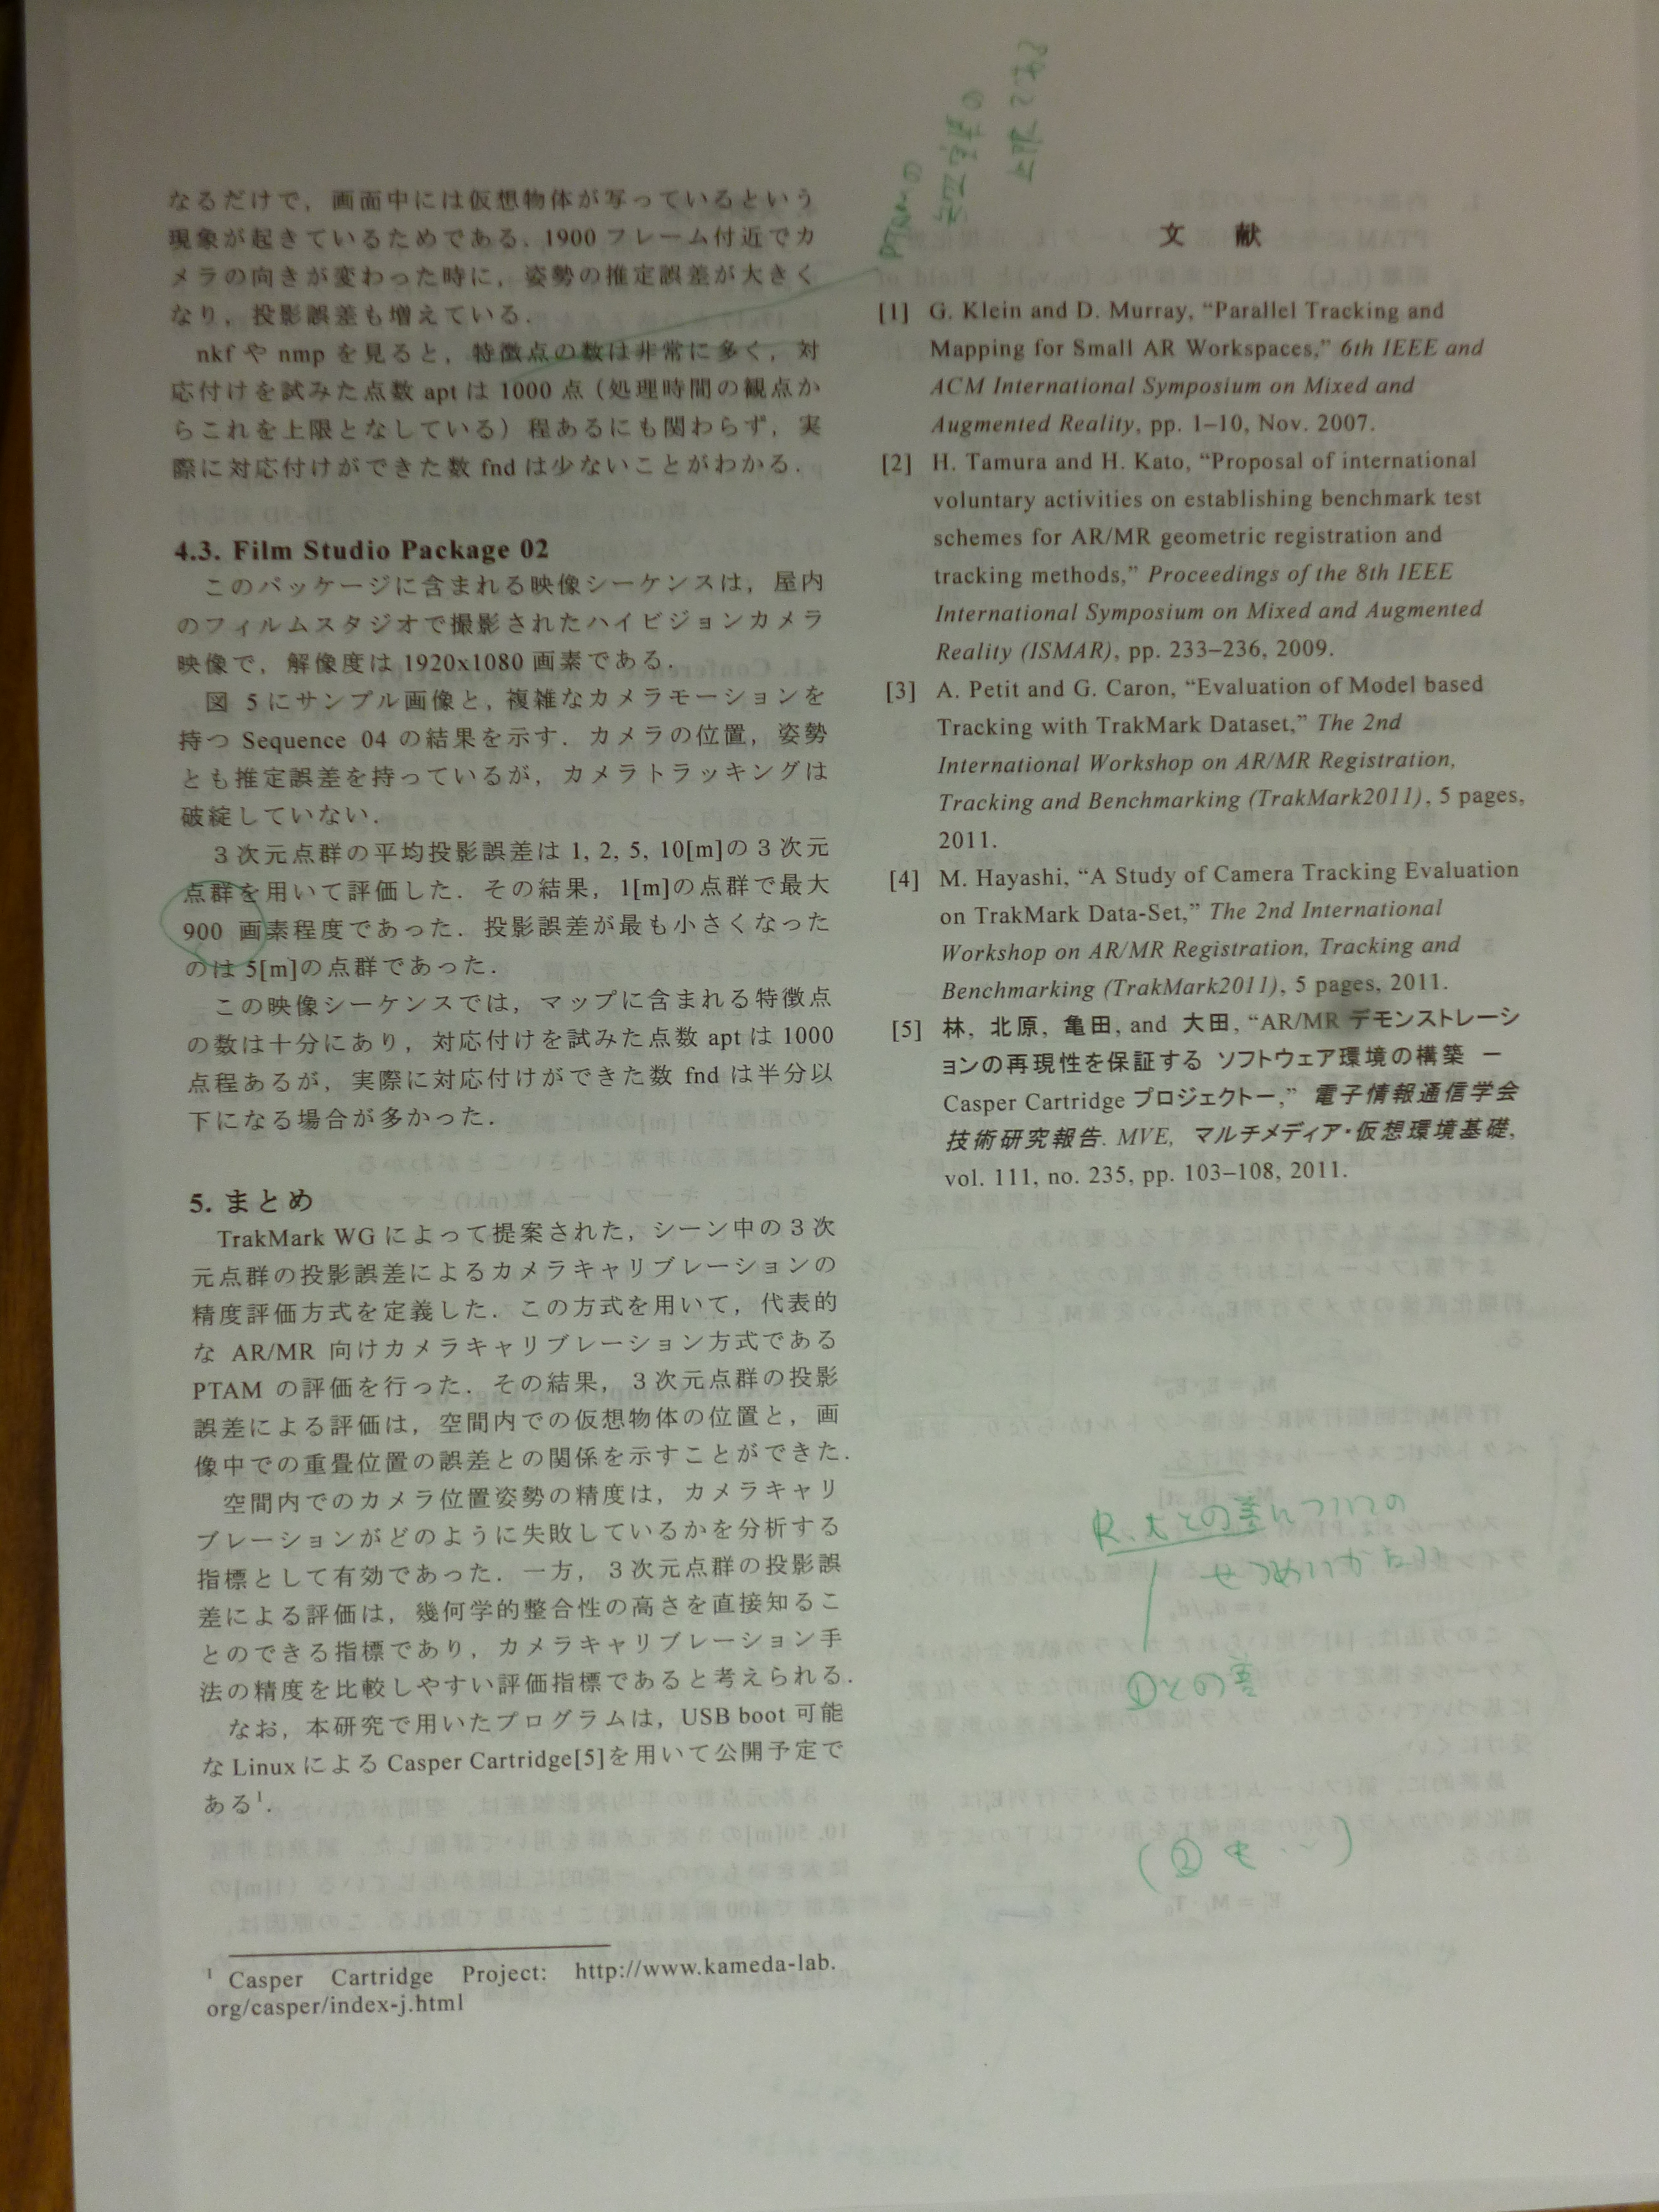 なるだけで，画面中には仮想物体が写っているという
現象が起きているためである．1900 フレーム付近でカ
メラの向きが変わった時に，姿勢の推定誤差が大きく
なり，投影誤差も増えている．
nkf や nmp を見ると，特徴点の数は非常に多く，対
応付けを試みた点数 apt は 1000 点（処理時間の観点か
らこれを上限となしている）程あるにも関わらず，実
際に対応付けができた数 fnd は少ないことがわかる．
4.3. Film Studio Package 02
このパッケージに含まれる映像シーケンスは，屋内
のフィルムスタジオで撮影されたハイビジョンカメラ
映像で，解像度は 1920x1080 画素である．
図 5 にサンプル画像と，複雑なカメラモーションを
持つ Sequence 04 の結果を示す．カメラの位置，姿勢
とも推定誤差を持っているが，カメラトラッキングは
破綻していない．
３次元点群の平均投影誤差は 1, 2, 5, 10[m]の３次元
点群を用いて評価した．その結果，1[m]の点群で最大
900 画素程度であった．投影誤差が最も小さくなった
のは 5[m]の点群であった．
この映像シーケンスでは，マップに含まれる特徴点
の数は十分にあり，対応付けを試みた点数 apt は 1000
点程あるが，実際に対応付けができた数 fnd は半分以
下になる場合が多かった．
5. まとめ
TrakMark WG によって提案された，シーン中の３次
元点群の投影誤差によるカメラキャリブレーションの
精度評価方式を定義した．この方式を用いて，代表的
な AR/MR 向けカメラキャリブレーション方式である
PTAM の評価を行った．その結果，３次元点群の投影
誤差による評価は，空間内での仮想物体の位置と，画
像中での重畳位置の誤差との関係を示すことができた．
空間内でのカメラ位置姿勢の精度は，カメラキャリ
ブレーションがどのように失敗しているかを分析する
指標として有効であった．一方，３次元点群の投影誤
差による評価は，幾何学的整合性の高さを直接知るこ
とのできる指標であり，カメラキャリブレーション手
法の精度を比較しやすい評価指標であると考えられる．
なお，本研究で用いたプログラムは，USB boot 可能
な Linux による Casper Cartridge[5]を用いて公開予定で
ある¹．
¹ Casper Cartridge Project: http://www.kameda-lab.
org/casper/index-j.html
文 献
[1] G. Klein and D. Murray, “Parallel Tracking and
Mapping for Small AR Workspaces,” 6th IEEE and
ACM International Symposium on Mixed and
Augmented Reality, pp. 1–10, Nov. 2007.
[2] H. Tamura and H. Kato, “Proposal of international
voluntary activities on establishing benchmark test
schemes for AR/MR geometric registration and
tracking methods,” Proceedings of the 8th IEEE
International Symposium on Mixed and Augmented
Reality (ISMAR), pp. 233–236, 2009.
[3] A. Petit and G. Caron, “Evaluation of Model based
Tracking with TrakMark Dataset,” The 2nd
International Workshop on AR/MR Registration,
Tracking and Benchmarking (TrakMark2011), 5 pages,
2011.
[4] M. Hayashi, “A Study of Camera Tracking Evaluation
on TrakMark Data-Set,” The 2nd International
Workshop on AR/MR Registration, Tracking and
Benchmarking (TrakMark2011), 5 pages, 2011.
[5] 林, 北原, 亀田, and 大田, “AR/MR デモンストレーシ
ョンの再現性を保証する ソフトウェア環境の構築 －
Casper Cartridge プロジェクトー,” 電子情報通信学会
技術研究報告. MVE, マルチメディア・仮想環境基礎,
vol. 111, no. 235, pp. 103–108, 2011.
R、tとの差についての
せつめいがたい
①との差
(② も …)